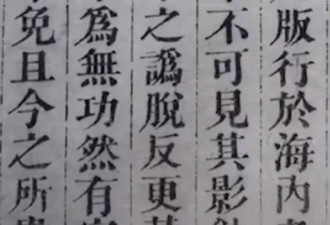 版行於海內
不可見其影
之譌脫反更甚
為無功然有
免且今之所